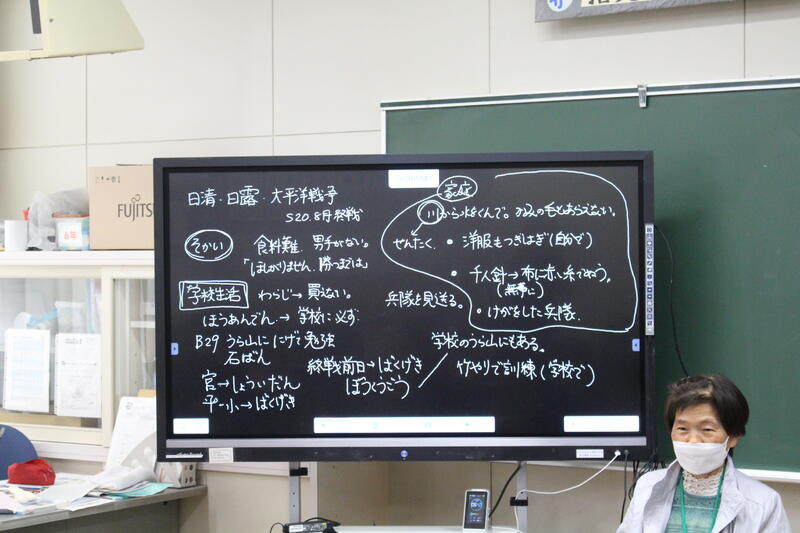 日清・日露・太平洋戦争
S20.8月終戦
そかい
食料難 男手がない。
「ほしがりません、勝つまでは」
学校生活
わらじ→買えない。
ほうあんでん→学校に必ず
B29 うら山ににげて勉強
石ばん
官→しょういだん
平一小→ばくげき
終戦前日→ばくげき
ぼうくうごう
学校のうら山にもある。
竹やりで訓練(学校で)
家庭
川から水をくんで。
せんたく
・洋服もつぎはぎ(自分で)
・千人針→布に赤い糸でぬう。
(無事に)
兵隊を見送る。
・けがをした兵隊
FUJITS